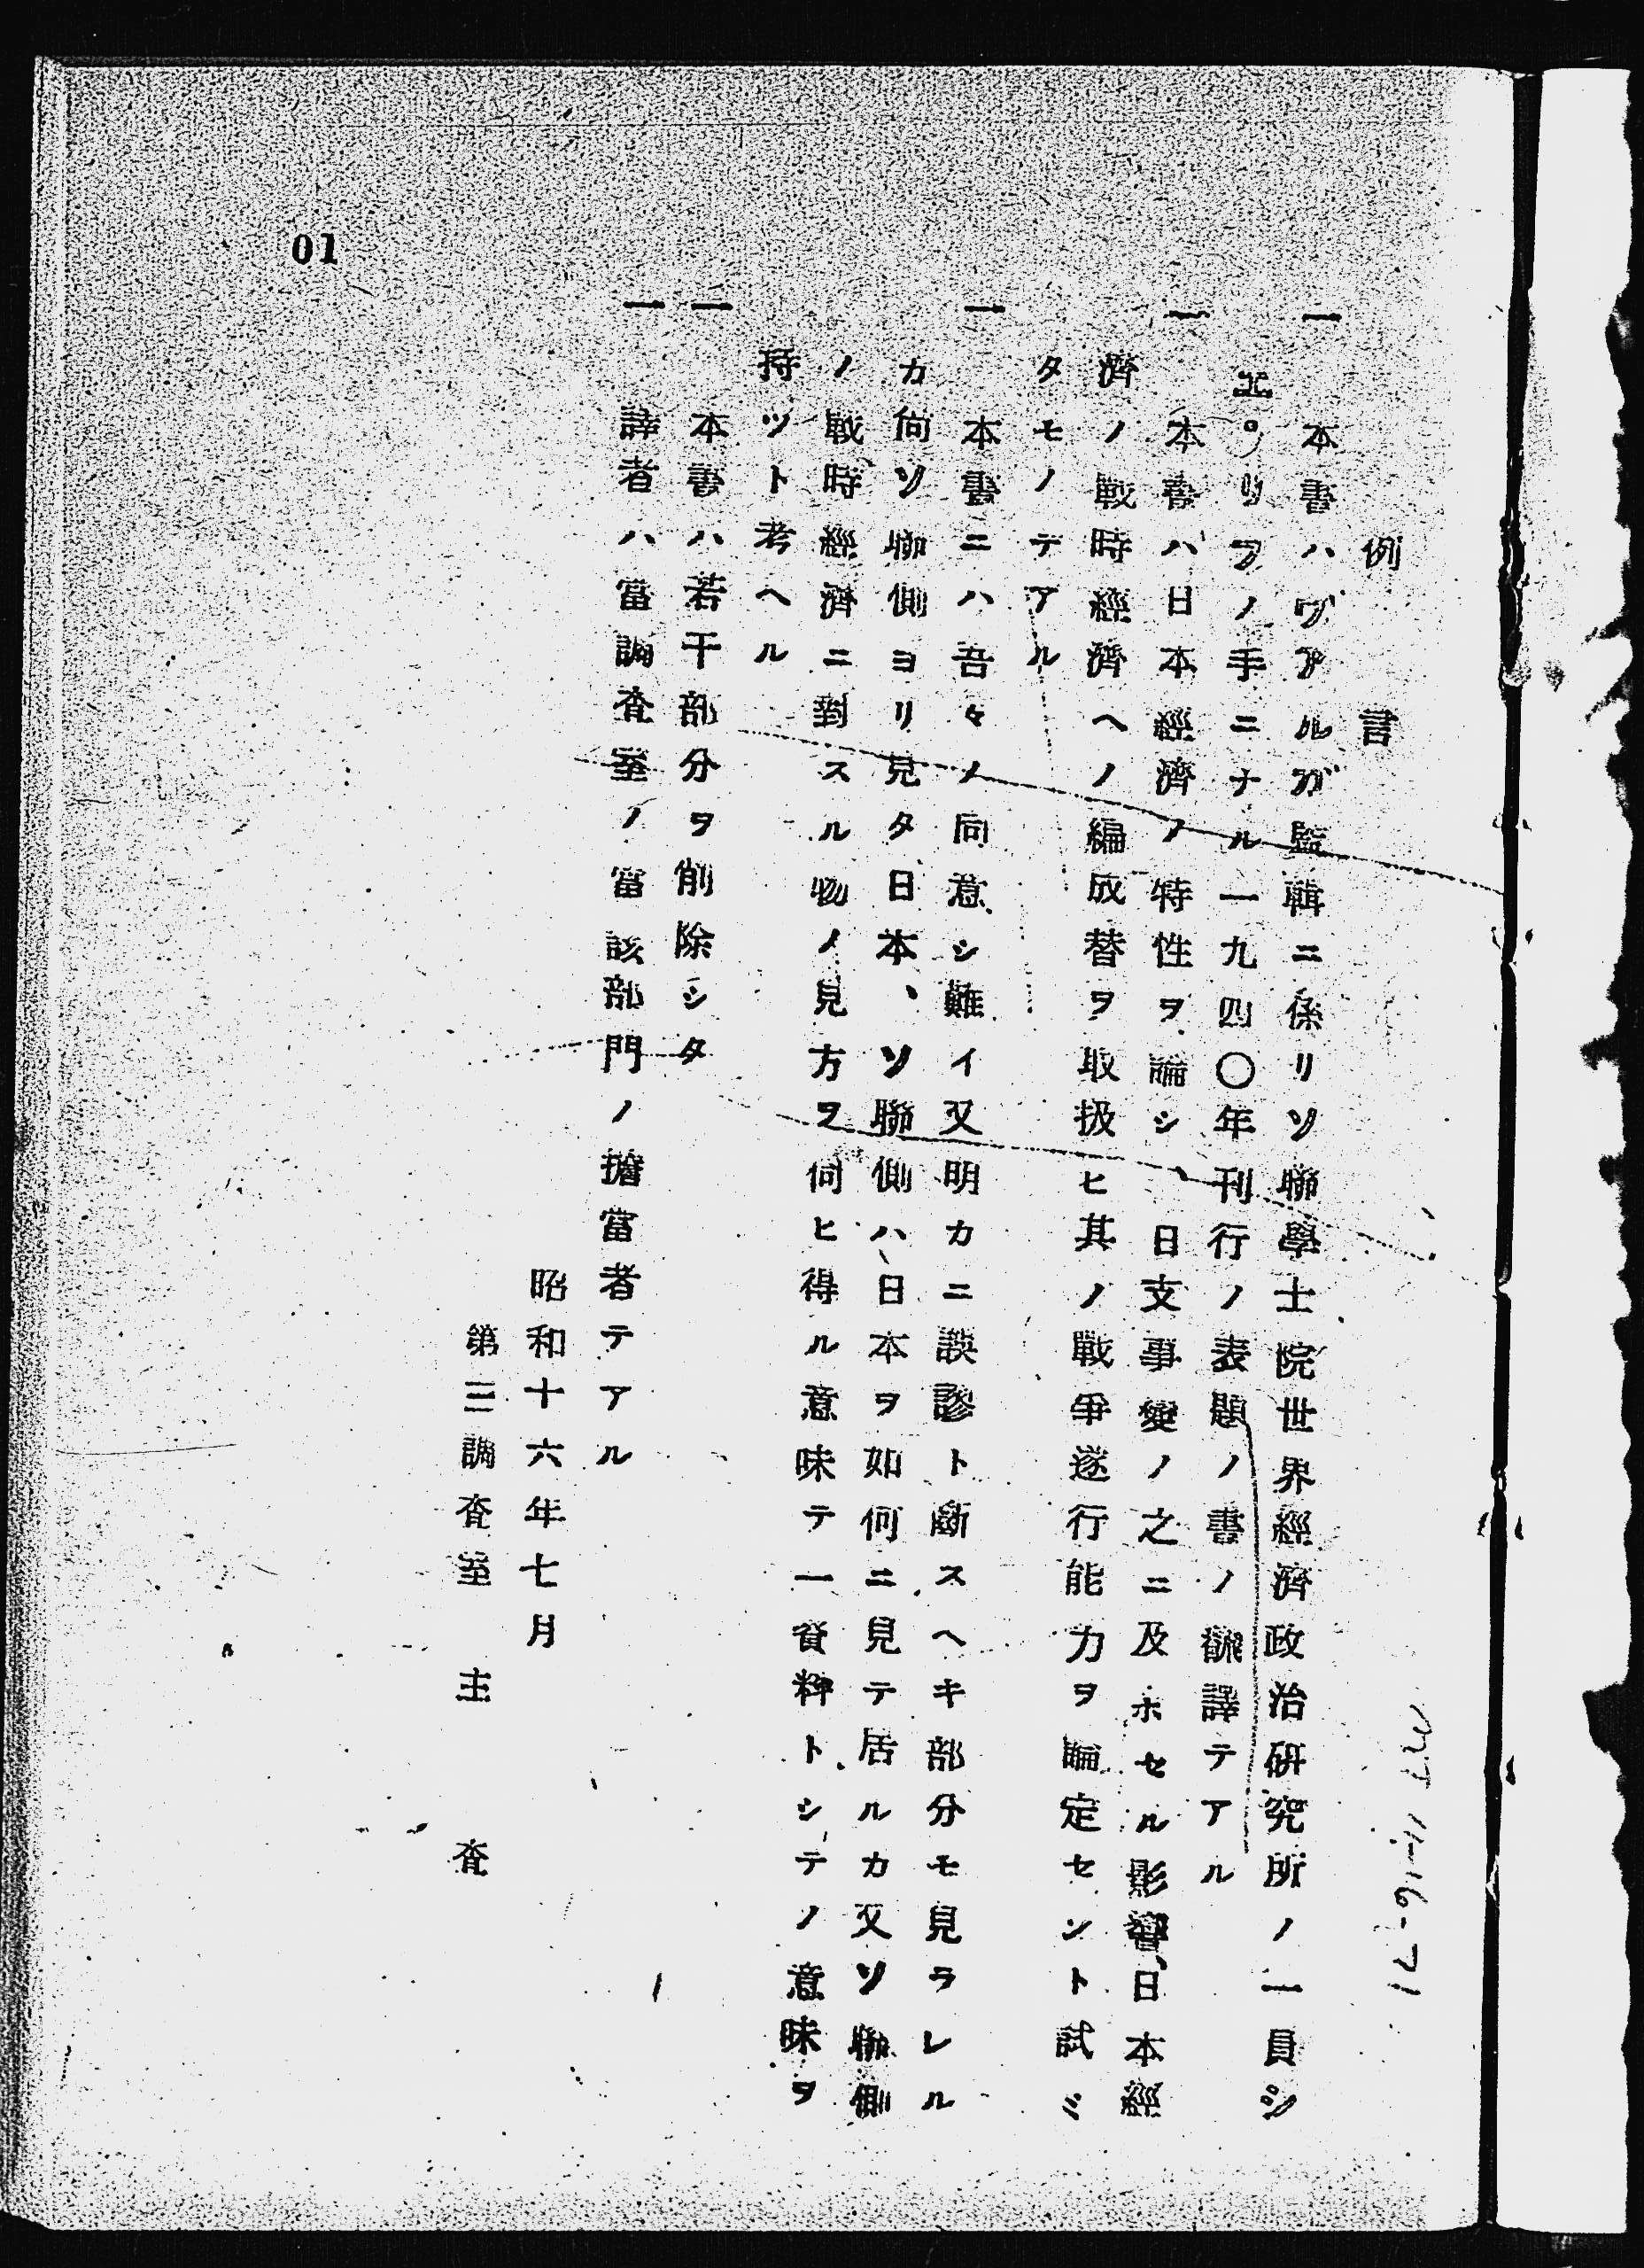 例言
一 本書ハヴアルガ監輯ニ係リソ聯學士院世界經濟政治研究所ノ一員シ
エ。リフノ手ニナル一九四〇年刊行ノ表題ノ書ノ飜譯テアル
一 本書ハ日本經濟ノ特性ヲ論シ、日支事變ノ之ニ及ホセル影響、日本經
濟ノ戰時經濟ヘノ編成替ヲ取扱ヒ其ノ戰爭遂行能力ヲ論定セント試ミ
タモノテアル
一 本書ニハ吾々ノ同意シ難イ又明カニ誤謬ト斷スヘキ部分モ見ラレル
カ尙ソ聯側ヨリ見タ日本、ソ聯側ハ日本ヲ如何ニ見テ居ルカ又ソ聯側
ノ戰時經濟ニ對スル物ノ見方ヲ伺ヒ得ル意味テ一資料トシテノ意味ヲ
持ツト考ヘル
一 本書ハ若干部分ヲ削除シタ
一 譯者ハ當調査室ノ當該部門ノ擔當者テアル
昭和十六年七月
第三調査室 主査
01